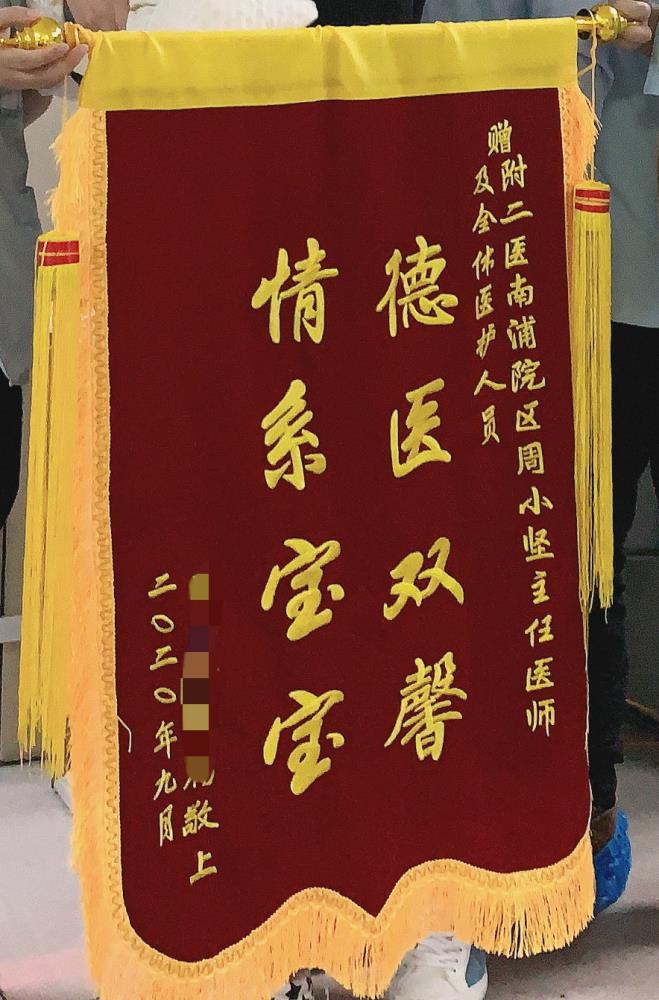 赠附二医南浦院区周小坚主任医师
及全体医护人员
德医双馨
情系宝宝
敬上
二〇二〇年九月